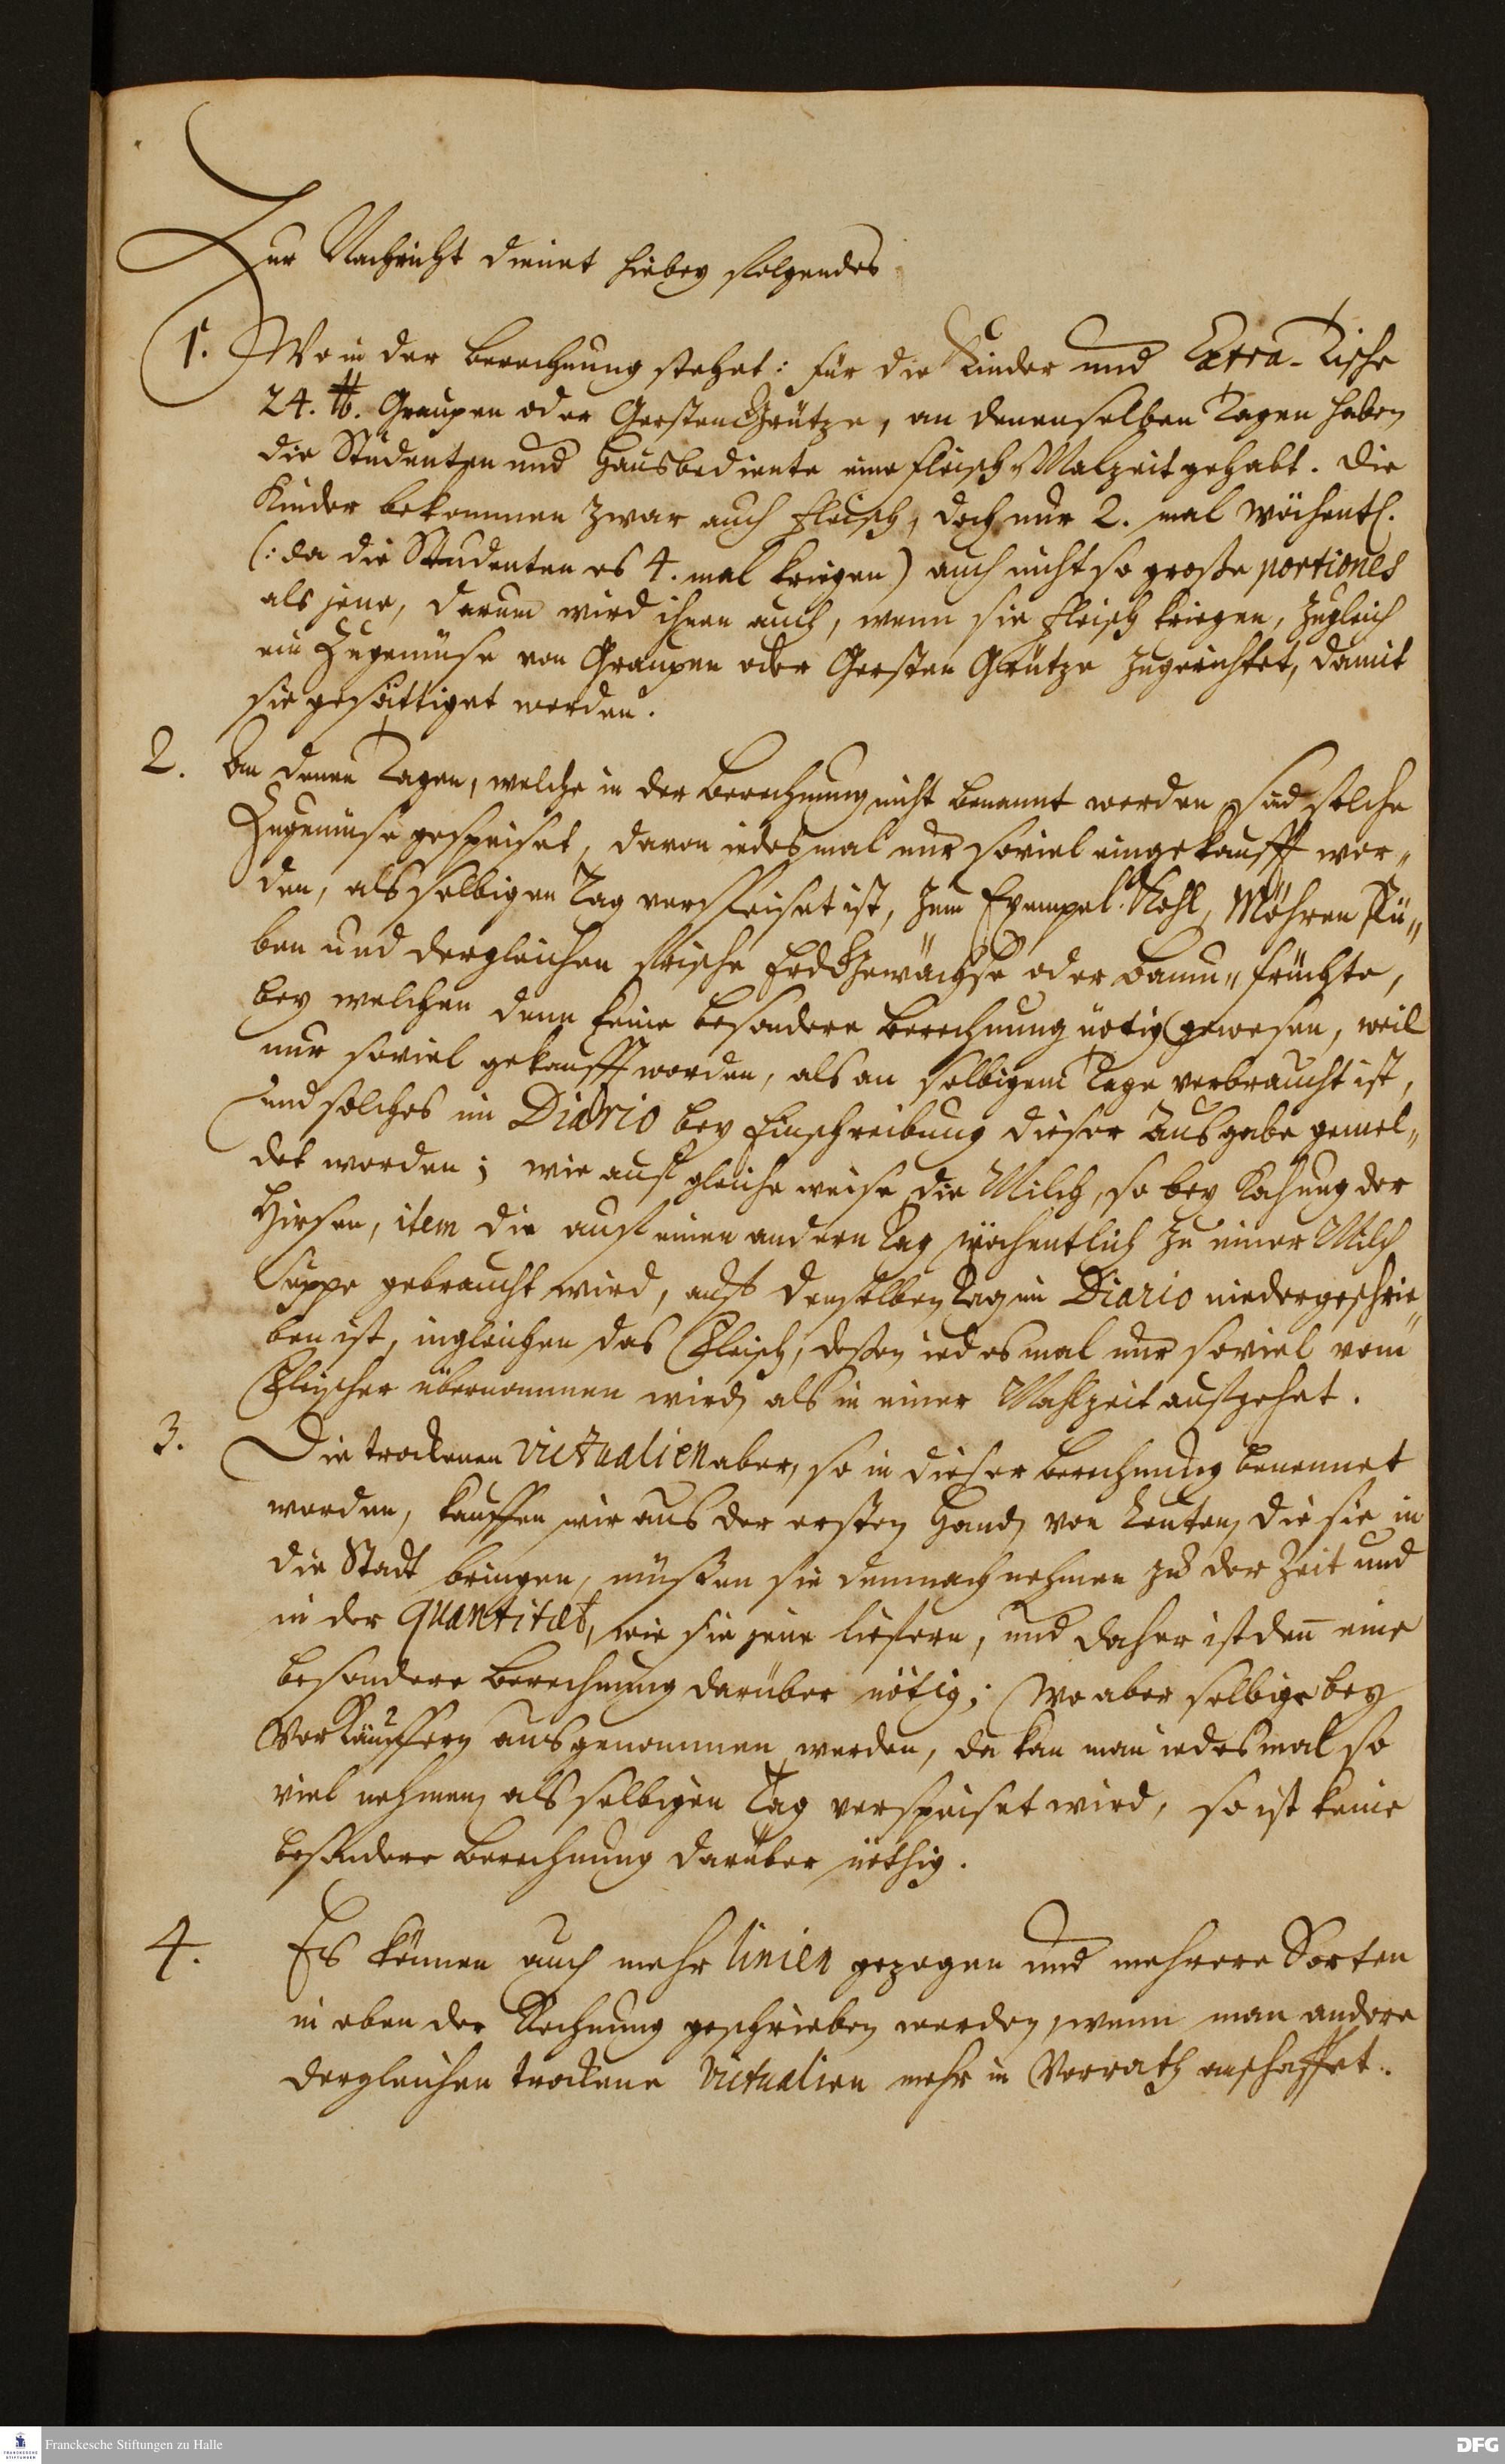 Zur Nachricht dienet hiebey folgendes
1. Wo in der Berechnung stehet: für die Kinder und Extra-Tische
24. ℔. Graupen oder Gersten Grütze, an denenselben Tagen haben
die Studenten und Hausbediente eine Fleisch-Malzeit gehabt. Die
Kinder bekommen zwar auch Fleisch, doch nur 2. mal wöchentl.
(: da die Studenten es 4. mal kriegen) auch nicht so große portiones
als jene, darum wird ihnen auch, wenn sie Fleisch kriegen, zugleich
ein Zugemüse von Graupen oder Gersten Grütze zugerichtet, damit
sie gesättiget werden.
2. An denen Tagen, welche in der Berechnung nicht benannt werden sind solche
Zugemüse gespeiset, davon iedesmal nur soviel eingekaufft wor„
den, als selbigen Tag verspeiset ist, zum Exempel: Kohl, Möhren Rü„
ben und dergleichen frische Erd Gewächse oder Baum„früchte,
bey welchen denn keine besondere Berechnung nötig gewesen, weil
nur soviel gekaufft worden, als an selbigem Tage verbraucht ist,
und solches im Diario bey Einschreibung dieser Ausgabe gemel„
det worden; wie auf gleiche weise die Milch, so bey Kochung der
Hirsen, item die auf einen andern Tag wöchentlich zu einer Milch
Suppe gebraucht wird, auf denselben Tag im Diario niedergeschrie„
ben ist, ingleichen das Fleisch, deßen iedesmal nur soviel vom
Fleischer übernommen wird, als in einer Mahlzeit aufgehet.
3. Die trockenen Victualien aber, so in dieser Berechnung benennet
worden, kauffen wir aus der ersten Hand, von Leuten, die sie in
die Stadt bringen, müßen sie demnach nehmen zu der Zeit und
in der quantitæt, wie sie jene liefern, und daher ist den̅ eine
besondere Berechnung darüber nötig; Wo aber selbige bey
Vorkäuffern ausgenommen werden, da kan man iedesmal so
viel nehmen als selbigen Tag verspeiset wird, so ist keine
besondere Berechnung darüber nöthig.
4. Es können auch mehr linien gezogen und mehrere Sorten
in eben der Rechnung geschrieben werden, wenn man andere
dergleichen trockene Victualien mehr in Vorrath anschaffet.
Franckesche Stiftungen zu Halle
DFG